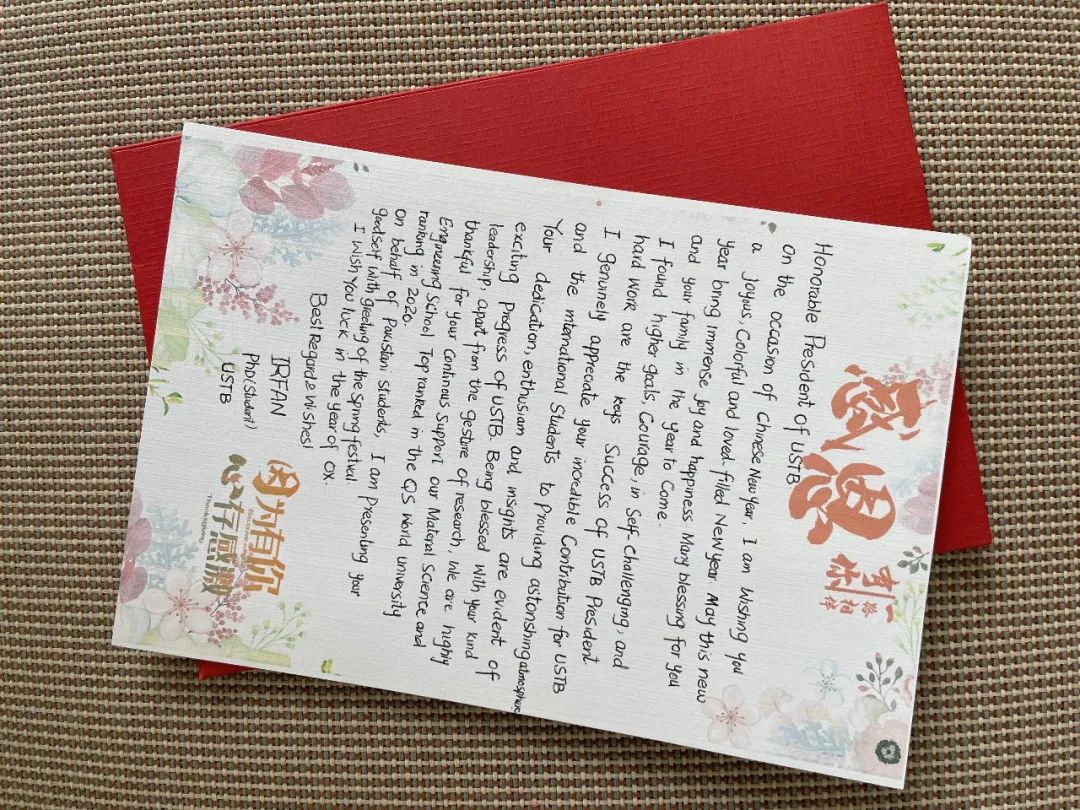 感恩
一路相伴
Honorable President of USTB
on the occasion of Chinese New Year. I am Wishing you
a Joyous, Colorful and loved-filled New year May this new
year bring immense joy and happiness Many blessing for you
and your family in the year to Come.
I found higher goals, Courage, in Self-Challenging, and
hard work are the keys Success of USTB President
I genuinely appreciate your incredible Contribution for USTB
and the international Students to Providing astonshing atmosphere
Your dedication, enthusiam and insights are evident of
exciting Progress of USTB. Being blessed with your kind
leadership, apart from the gesture of research, We are highly
thankful for your Continous Support our Material Science and
Engineering School Top ranked in the QS World University
ranking in 2020.
On behalf of Pakistani students, I am Presenting your
goodself with greeting of the Spring festival.
I wish You luck in the year of Ox.
Best Regards & Wishes!
IRFAN
PhD (Student)
USTB
因为有你
心存感激
Thanksgiving